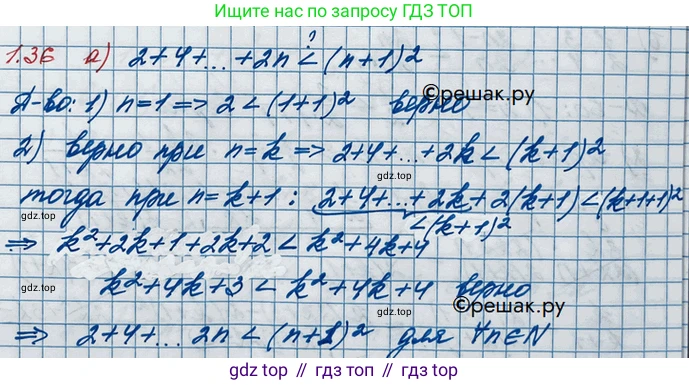 Ищите нас по запросу ГДЗ ТОП
1.36 а) 2+4+...+2n <? (n+1)²
Д-во: 1) n=1 => 2 < (1+1)² верно
©решак.ру
gdz.top
2) верно при n=k => 2+4+...+2k < (k+1)²
тогда при n=k+1: 2+4+...+2k+2(k+1) < (k+1+1)²
gdz.top gdz.top
<(k+1)²
=> k²+2k+1+2k+2 < k²+4k+4
k²+4k+3 < k²+4k+4 верно
©решак.ру
gdz.top
=> 2+4+... 2n < (n+1)² для ∀n∈N
gdz.top // gdz.top // gdz.top // gdz.top